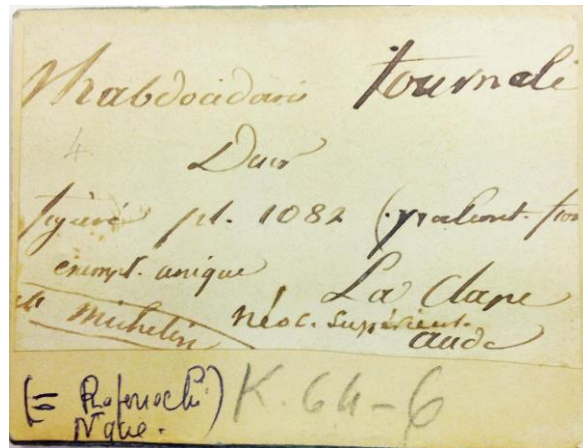 Rhabdocidaris tournali
4
Desor
figuré pl. 1082 (paléont. fr
exempl. unique La Clape
Michelin néoc. supérieur.
Aude
(=
K. 64-6